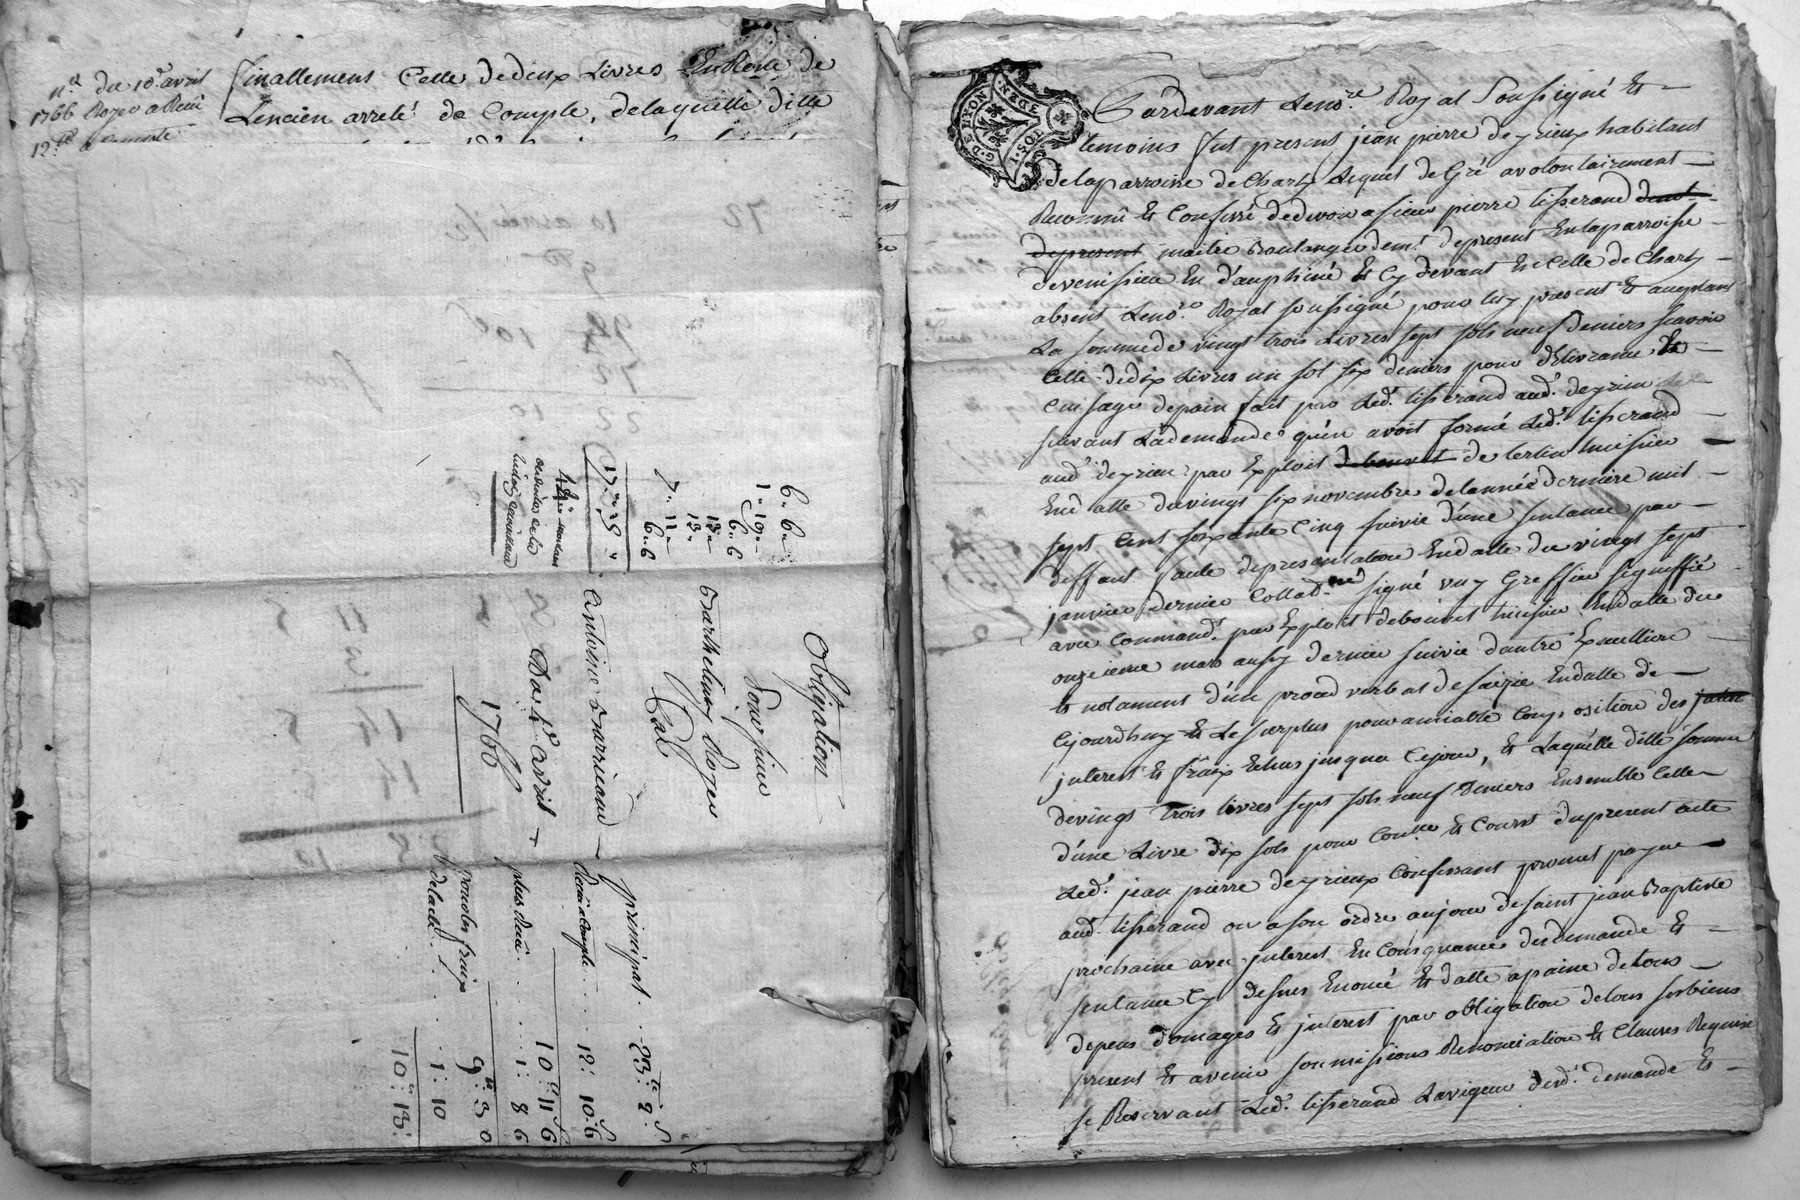 n.a du 10e avril
1766 Rozer a Recû
12.lt a compte
finallement Celle de deux Livres En Reste de
L'encien arreté de Compte, de laquelle ditte
72
10
22 10
6.. 6..
1.. 10..
6.. 6
13..
13..
7.. 11..
6.. 6
Obligation
Pour sieur
Barthelemy Rozer
Cal
Antoine Barrieaud
Du 4e Avril
1766
principal .. 23: 2:
Recû a Compte .. 12: 10: 6
10: 11: 6
plus dû .. 1: 8 6
9: 3 0
pour les fraix
de lacte .. 1: 10
10: 13:
11 5
3
14 5
14 5
28 10
G. DE LYON
DE DEN.
1. SOL
Pardevant Le no.re Royal Soussigné Et
temoins fut present jean pierre deyrieux habitant
de la parroisse de Charly Lequel de Gré a volontairement
Reconnû Et Confessé de devoir a sieur pierre tisserand demt
depresent maitre Boulanger demt. depresent En la parroisse
de venissieu En d'auphiné Et Cy devant En Celle de Charly
absent Le no.re Royal soussigné pour luy present Et acceptant
La somme de vingt trois Livres sept sols neuf deniers scavoir
Celle de dix Livres un sol six deniers pour délivrance Et
Cuisage de pain fait par Led. tisserand aud. deyrieu
suivant La demande qu'en avoit formé Led. tisserand
aud. deyrieu par Exploit de bouvet de tertin huissier
En datte du vingt six novembre de l'année derniere mil
sept Cent soixante Cinq suivie d'une sentence par
deffaut faute de presentation En datte du vingt sept
janvier dernier Collad.né signé vuy Greffier signiffié
avec Commandt. par Exploit de bouvet huissier En datte du
onzieme mars aussy dernier suivie d'autre Executtoire
Et notament d'un procés verbal de saizie En datte de
Cejourdhuy Et Le surplus pour amiable Composition des
jnterest Et fraix Echus jusqu'a Cejour, Et Laquelle ditte somme
de vingt trois livres sept sols neuf deniers Ensemble Celle
d'une Livre dix sols pour Coutte Et Coust du present acte
Led. jean pierre deyrieux Confessant promet payer
aud. tisserand ou a son ordre au jour de saint jean Baptiste
prochaine avec jnterest En Consequance des demande Et
sentance Cy dessus Enoncé Et datté a paine de tous
depens domages Et jnterest par obligation de tous ses biens
present Et avenir soumissions Renonciation Et Clauses Requise
se Reservant Led. tisserand La vigeur desd. demande Et